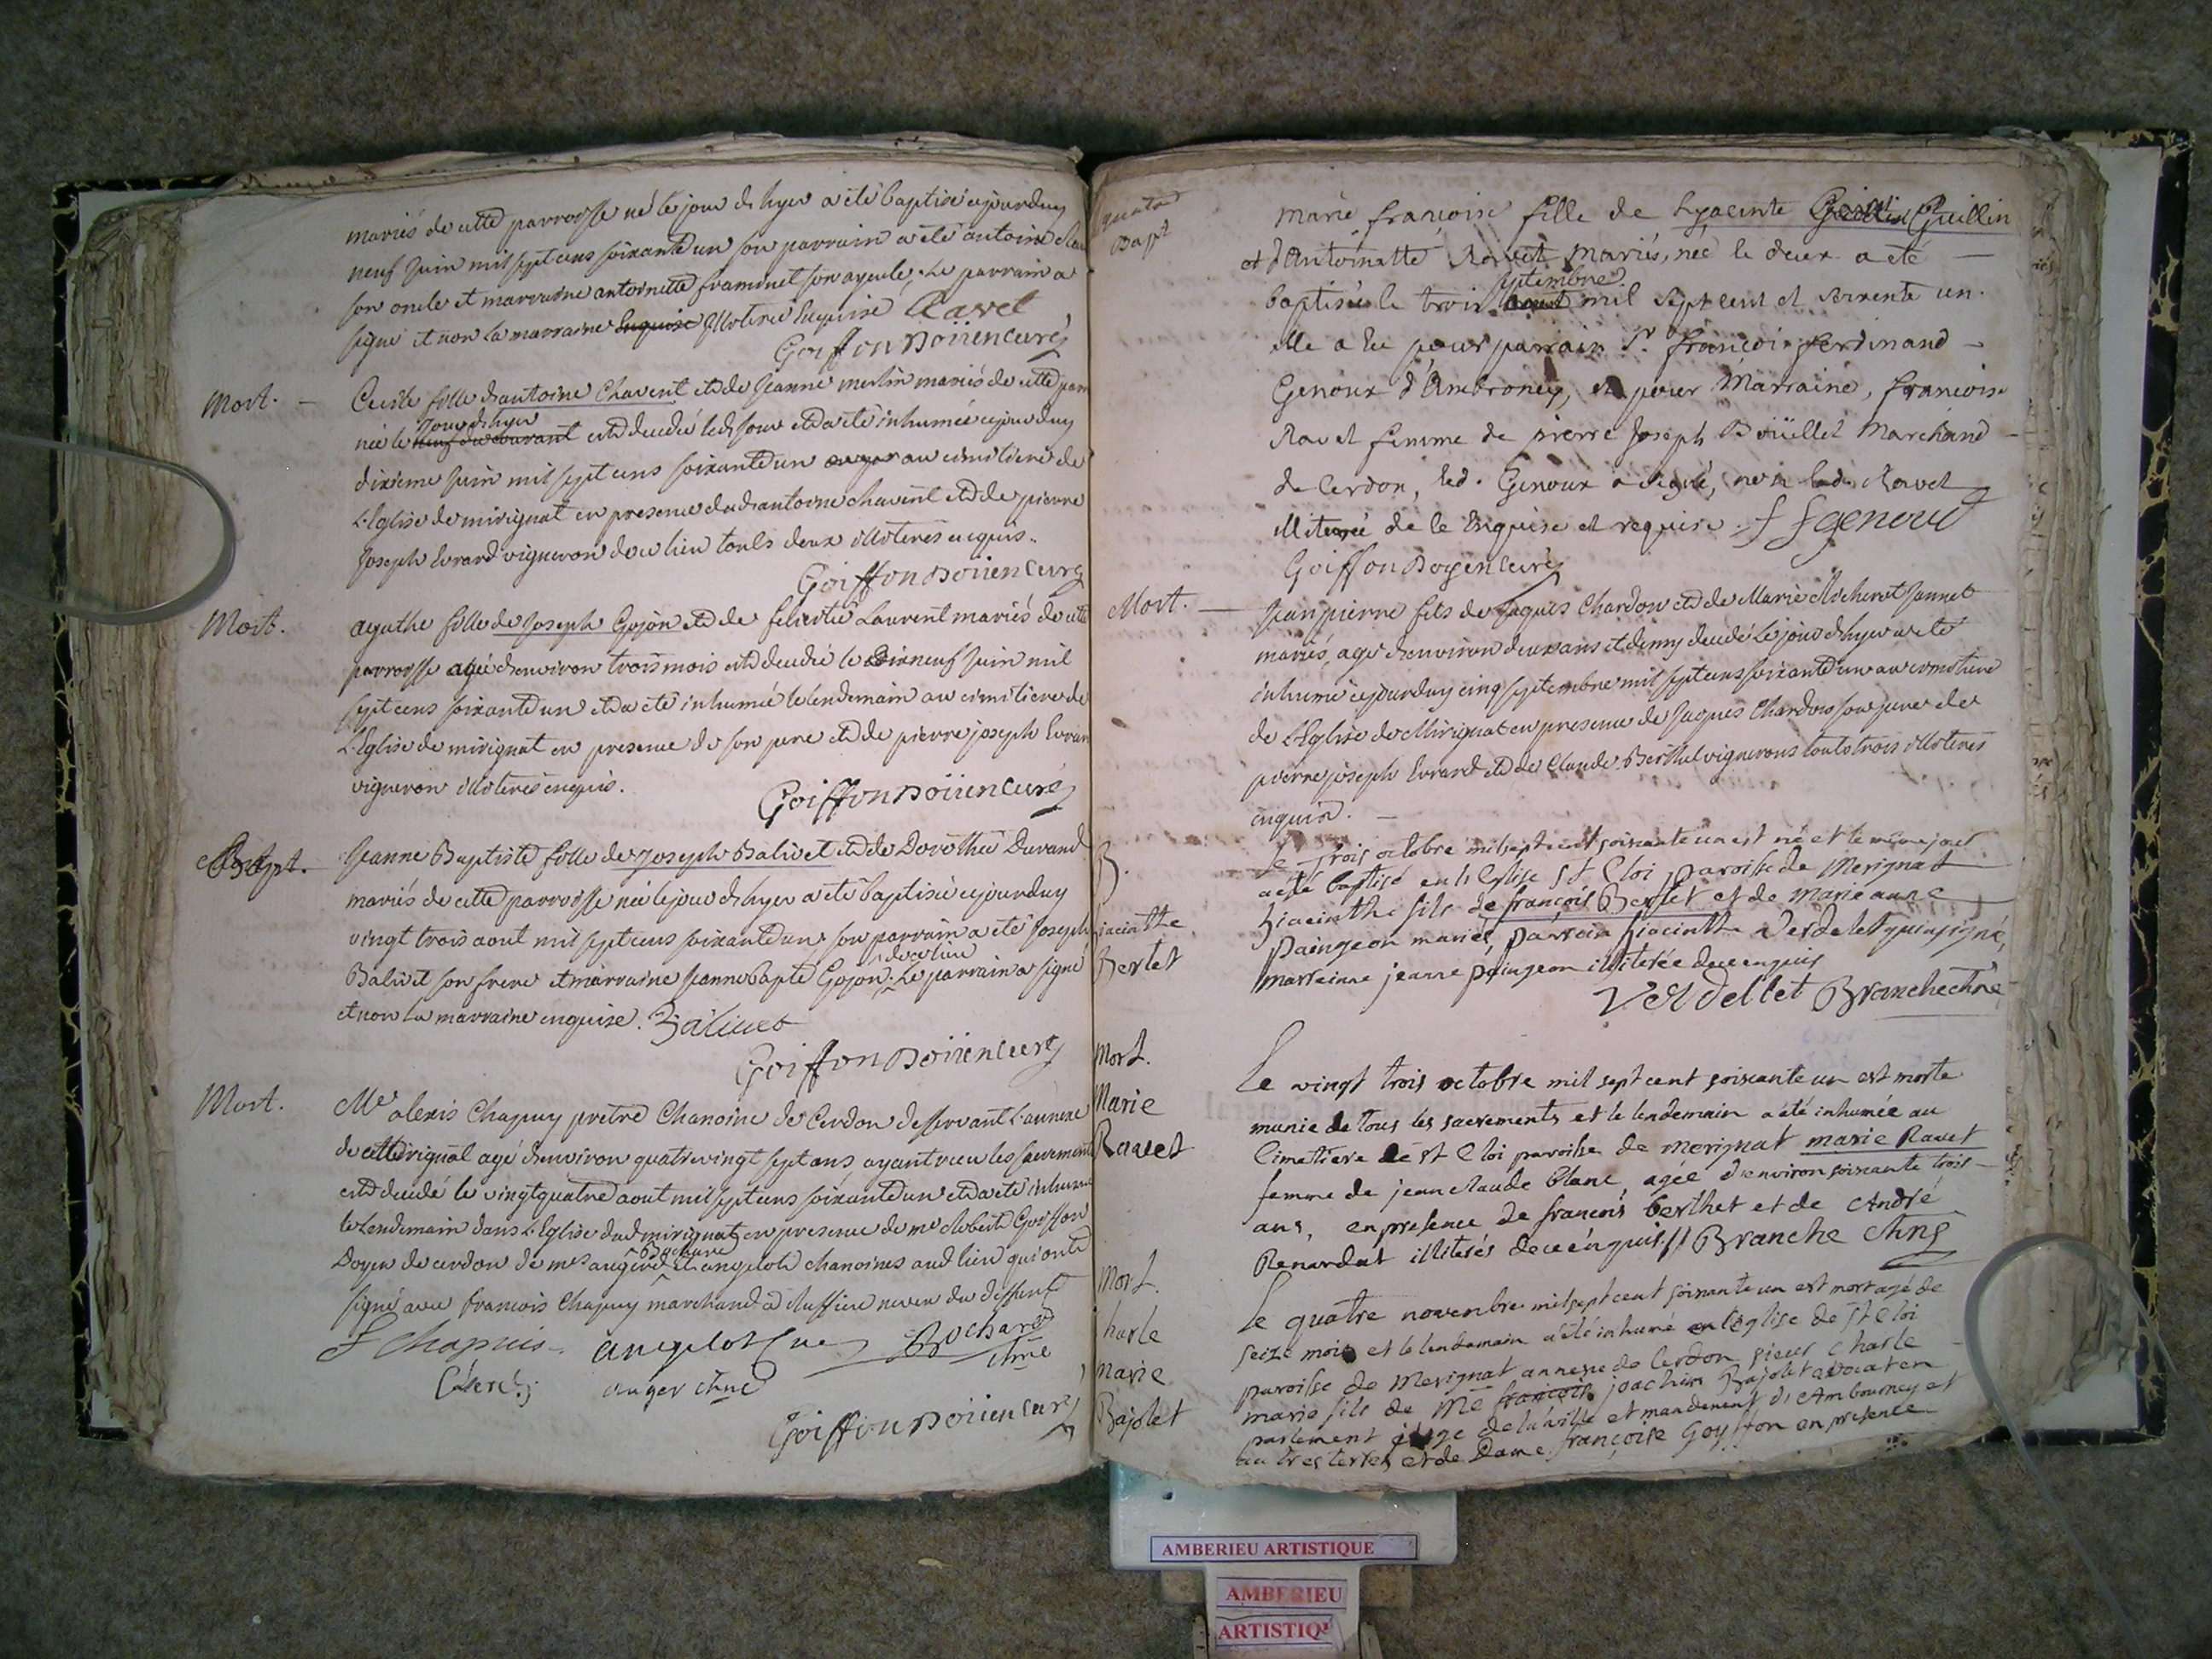 mariés de cette parroisse né le jour d'hyer a été baptisé cejourduy
neuf juin mil sept cens soixante un son parrain a été antoine
son oncle et marraine antoinette framinet son ayeule, Le parrain a
signé et non la marraine enquise illiterée enquise Ravet
Goiffon Doïien curé
Mort. Cecile fille d'antoine Chavent et de Jeanne merlin mariés de cette parr
née le neuf du courant jour d'hyer est decedée led jour et a été inhumée cejourduy
dixieme juin mil sept cens soixante un au cimitiere de
L'Eglise de mirignat en presence dud antoine chavent et de pierre
Joseph Evrard vigneron de ce lieu touts deux illiterés enquis.
Goiffon Doïien curé
Mort. agathe fille de Joseph Gojon et de felicitée Laurent mariés de cette
parroisse agé d'environ trois mois est decedée le dixneuf juin mil
sept cens soixante un et a été inhumée le lendemain au cimitiere de
L'Eglise de mirignat en presence de son pere et de pierre joseph Evrar
vigneron illiterés enquis.
Goiffon Doïien curé
Bapt. Jeanne Baptiste fille de Joseph Balivet et de Dorothée Durand
mariés de cette parroisse née le jour d'hyer a été baptisée cejourduy
vingt trois aout mil sept cens soixante un son parrain a été Joseph
Balivet son frere et marraine Jeanne bapte Gojon de ce lieu. Le parrain a signé
et non la marraine enquise. Balivet
Goiffon Doïien curé
Mort. Mre alexis Chapuy pretre Chanoine de Cerdon desservant L'annexe
de Mirignat agé d'environ quatre vingt sept ans ayant reçu les sacrements
est decedé le vingt quatre aout mil sept cens soixante un et a été inhumé
le Lendemain dans L'Eglise dud mirignat en presence de mre Goiffon
Doyen de cerdon de mrs auger Bochard et anjelot chanoines aud lieu qui ont
signé avec francois Chapuy marchand a neveu du deffunt
F Chapuis anjelot chne Bochard chne
auger chne
Goiffon Doïien curé
Bapt
Marie francoise fille de hyacinte Guillin
et d'Antoinette Ravet mariés, née le deux a été
baptisée le trois septembre mil sept cent et soixente un.
elle a eu pour parrain Sr. françois ferdinand
Genoux d'Ambroney, et pour Marraine, francoise
Ravet femme de pierre Joseph Boüillet Marchand
de Cerdon, led. Genoux a signé, non lad. Ravet
illiterée de ce Enquise et requise. f f genoud
Goiffon Doyen curé
Mort. Jean pierre fils de Jaques Chardon et de Marie Jannet
mariés, agé d'environ deux ans et demy decedé Le jour d'hyer a été
inhumé cejourduy cinq septembre mil sept cens soixante un au cimitiere
de L'Eglise de Mirignat en presence de Jaques Chardon son pere de
pierre joseph Evrard et de Claude Berthet vignerons touts trois illiterés
enquis.
B. Le trois octobre mil sept cent soixante un est né et le même jour
a été baptisé en l'eglise St Eloi paroisse de Merignat
hiacinthe hiacinthe fils de françois Bertet et de marie anne
paingeon mariés, parrain hiacinthe Verdelet qui a signé,
Bertet marrainne jeanne paingeon illiterée de ce enquis
Verdellet Branche chne
Mort. Le vingt trois octobre mil sept cent soixante un est morte
Marie munie de tous les sacrements et le lendemain a été inhumée au
Ravet Cimetiere de st Eloi paroisse de merignat marie Ravet
femme de jean claude blanc, agée d'environ soixante trois
ans, en presence de françois berthet et de André
Renardat illiterés de ce enquis // Branche chne
Mort. Le quatre novembre mil sept cent soixante un est mort agé de
Charle seize mois et le lendemain a été inhumé en l'eglise de St Eloi
marie paroisse de Merignat annexe de Cerdon sieur Charle
Bajolet marie fils de Me francois joachim Bajolet avocat en
parlement juge de la ville et mandement d'Ambourney et
autres terres et de Dame françoise Goyffon en presence
AMBERIEU ARTISTIQUE
AMBERIEU
ARTISTIQ